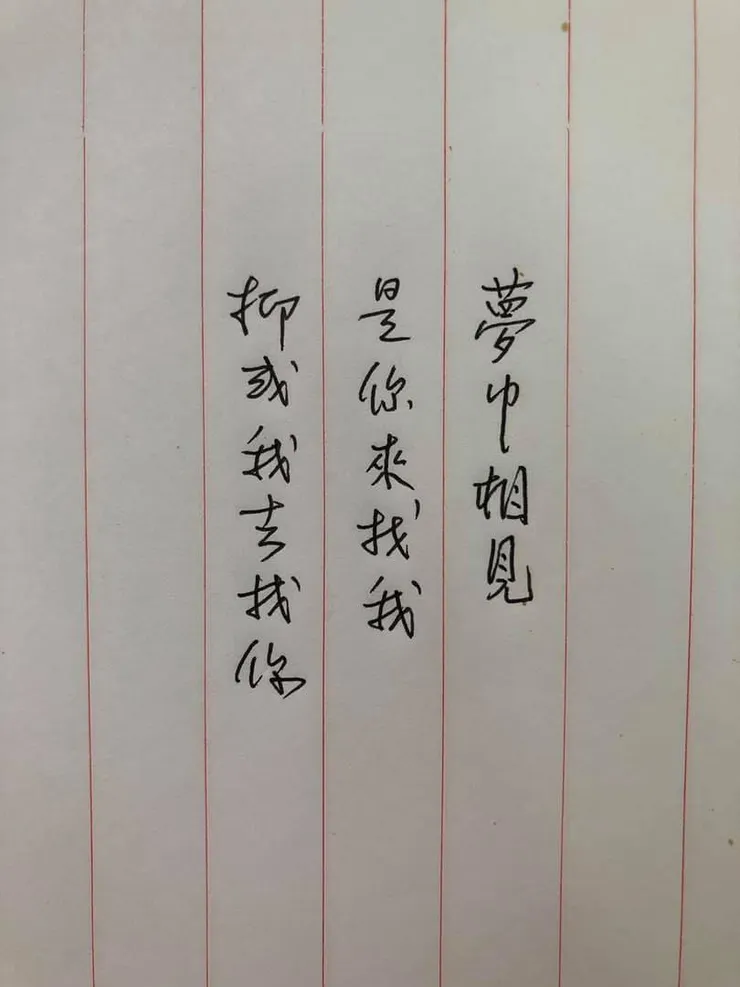 夢中相見
是你來找我
抑或我去找你